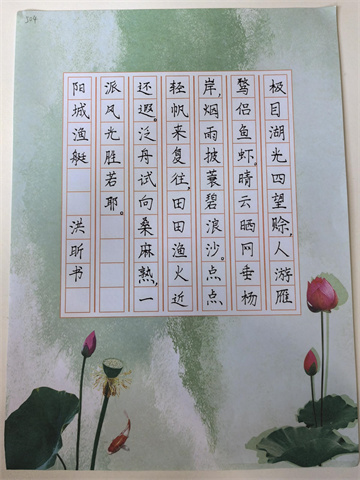 504
极目湖光四望赊,人游雁
骛侣鱼虾。晴云晒网垂杨
岸,烟雨披蓑碧浪沙。点点
轻帆来复往,田田渔火近
还遐。泛舟试向桑麻熟,一
派风光胜若耶。
阳城渔艇 洪昕书